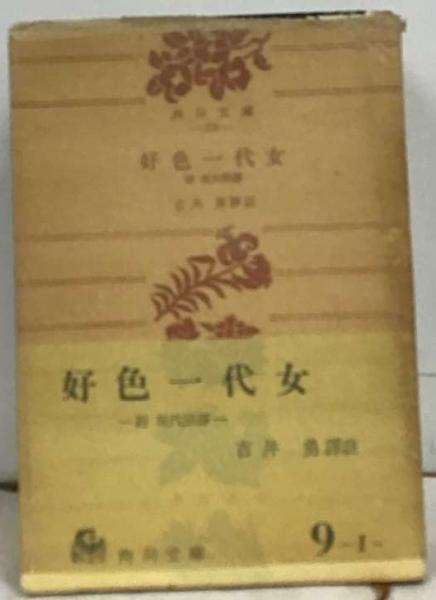 角川文庫
好色一代女
吉井 勇譯註
好色一代女
—附 現代語譯—
吉井 勇譯註
角川文庫
9-1-